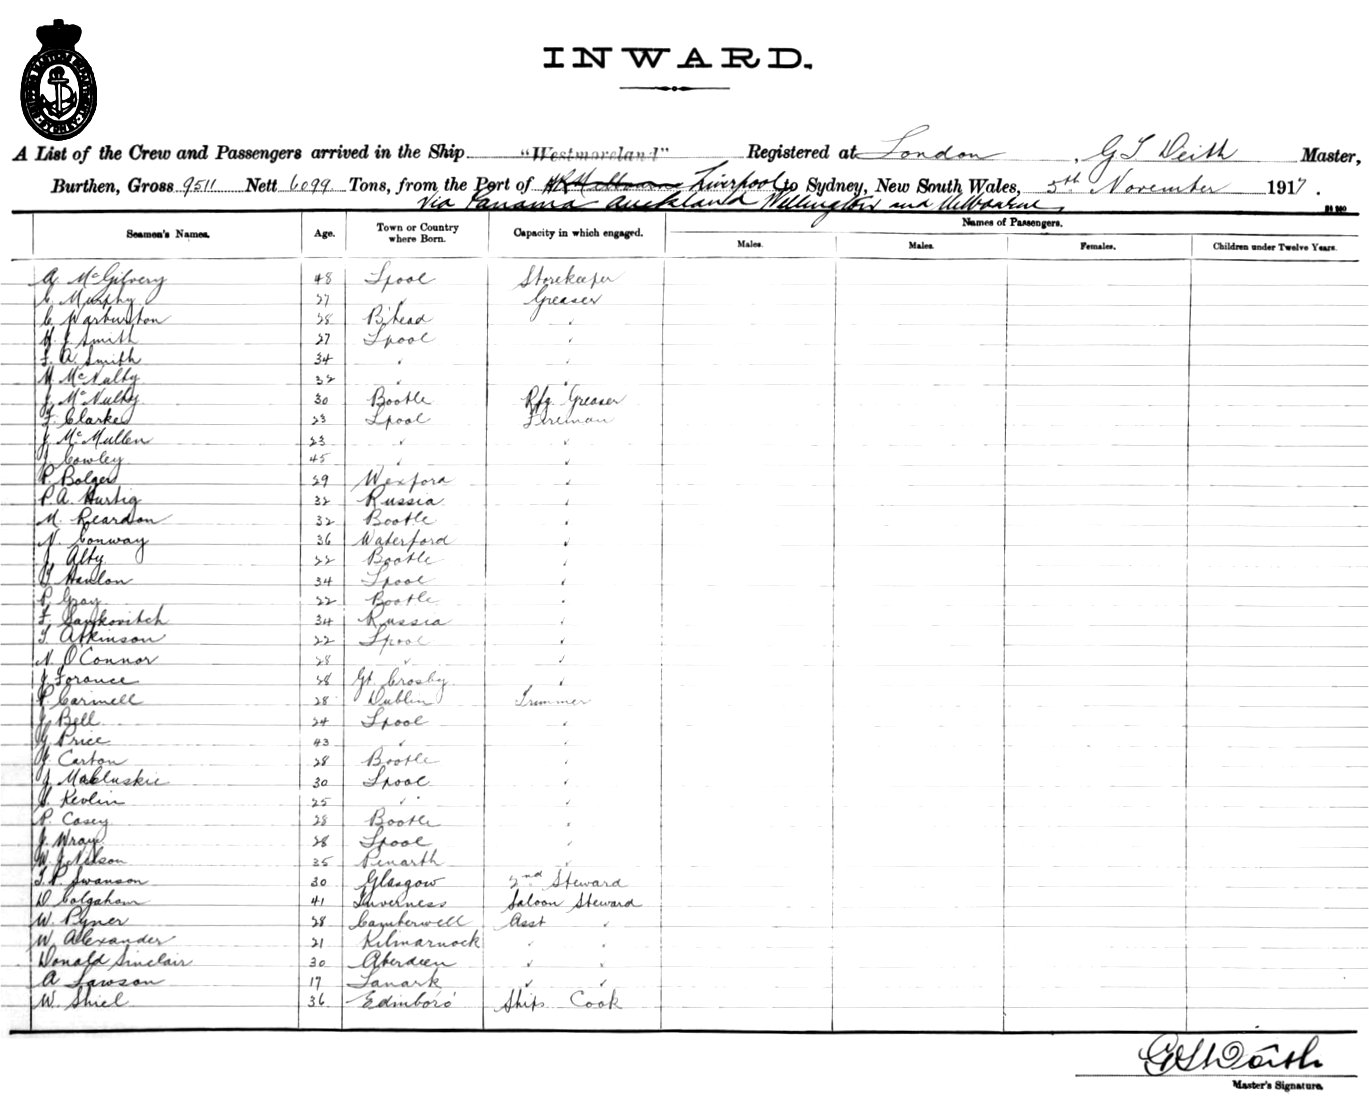 INWARD.
A List of the Crew and Passengers arrived in the Ship "Westmoreland" Registered at London, G S Deith Master,
Burthen, Gross 9511 Nett 6099 Tons, from the Port of Liverpool to Sydney, New South Wales, 5th November 1917.
via Panama Auckland Wellington and Melbourne
Names of Passengers.
Seamen's Names. Age. Town or Country where Born. Capacity in which engaged. Males. Males. Females. Children under Twelve Years.
A. McGilvery 48 Lpool Storekeeper
C. Murphy 27 " Greaser
C Warburton 28 B'head "
H J Smith 27 Lpool "
F. A. Smith 34 " "
M McNulty 32 " "
J. McNulty 30 Bootle Rfg Greaser
F. Clarke 23 Lpool Fireman
J. McMullen 23 " "
J. Cowley 45 " "
P. Bolger 29 Wexford "
P. A. Hurtig 32 Russia "
M. Reardon 32 Bootle "
N. Conway 36 Waterford "
J. Alty 22 Bootle "
T Hanlon 34 Lpool "
P. Gray 22 Bootle "
F. Sankovitch 34 Russia "
T. Atkinson 22 Lpool "
N. O'Connor 28 " "
J Torance 28 Gt. Crosby "
P. Carmell 28 Dublin Trimmer
J. Bell 24 Lpool "
J Price 43 " "
J Carton 28 Bootle "
J. McCluskie 30 Lpool "
J. Kevlin 25 " "
P. Casey 28 Bootle "
J. Wray 28 Lpool "
W. J. Nelson 35 Penarth "
T. P. Swanson 30 Glasgow 2nd Steward
D Colquhoun 41 Inverness Saloon Steward
W. Pyner 28 Camberwell Asst "
W. Alexander 21 Kilmarnock " "
Donald Sinclair 30 Aberdeen " "
A Lawson 17 Lanark " "
W. Shiel 36 Edinboro' Ships Cook
G S Deith
Master's Signature.